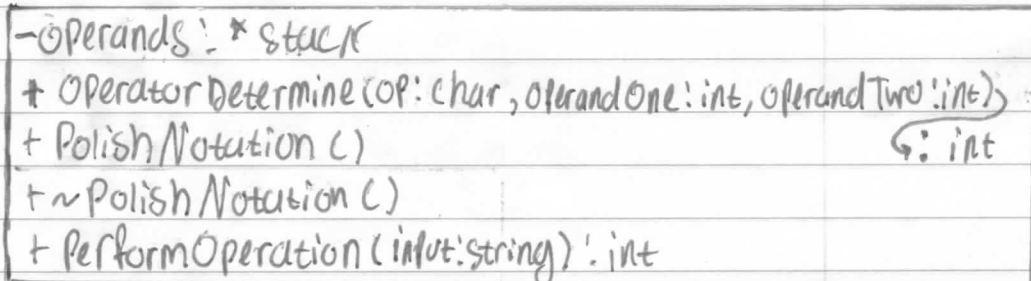 -operands: * stack
+ OperatorDetermine(op: char, operandOne: int, operandTwo: int)
: int
+ PolishNotation()
+ ~PolishNotation()
+ PerformOperation(input: string): int